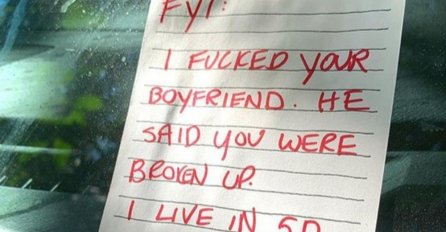 FYI:
I FUCKED YOUR
BOYFRIEND. HE
SAID YOU WERE
BROKEN UP.
I LIVE IN 5D